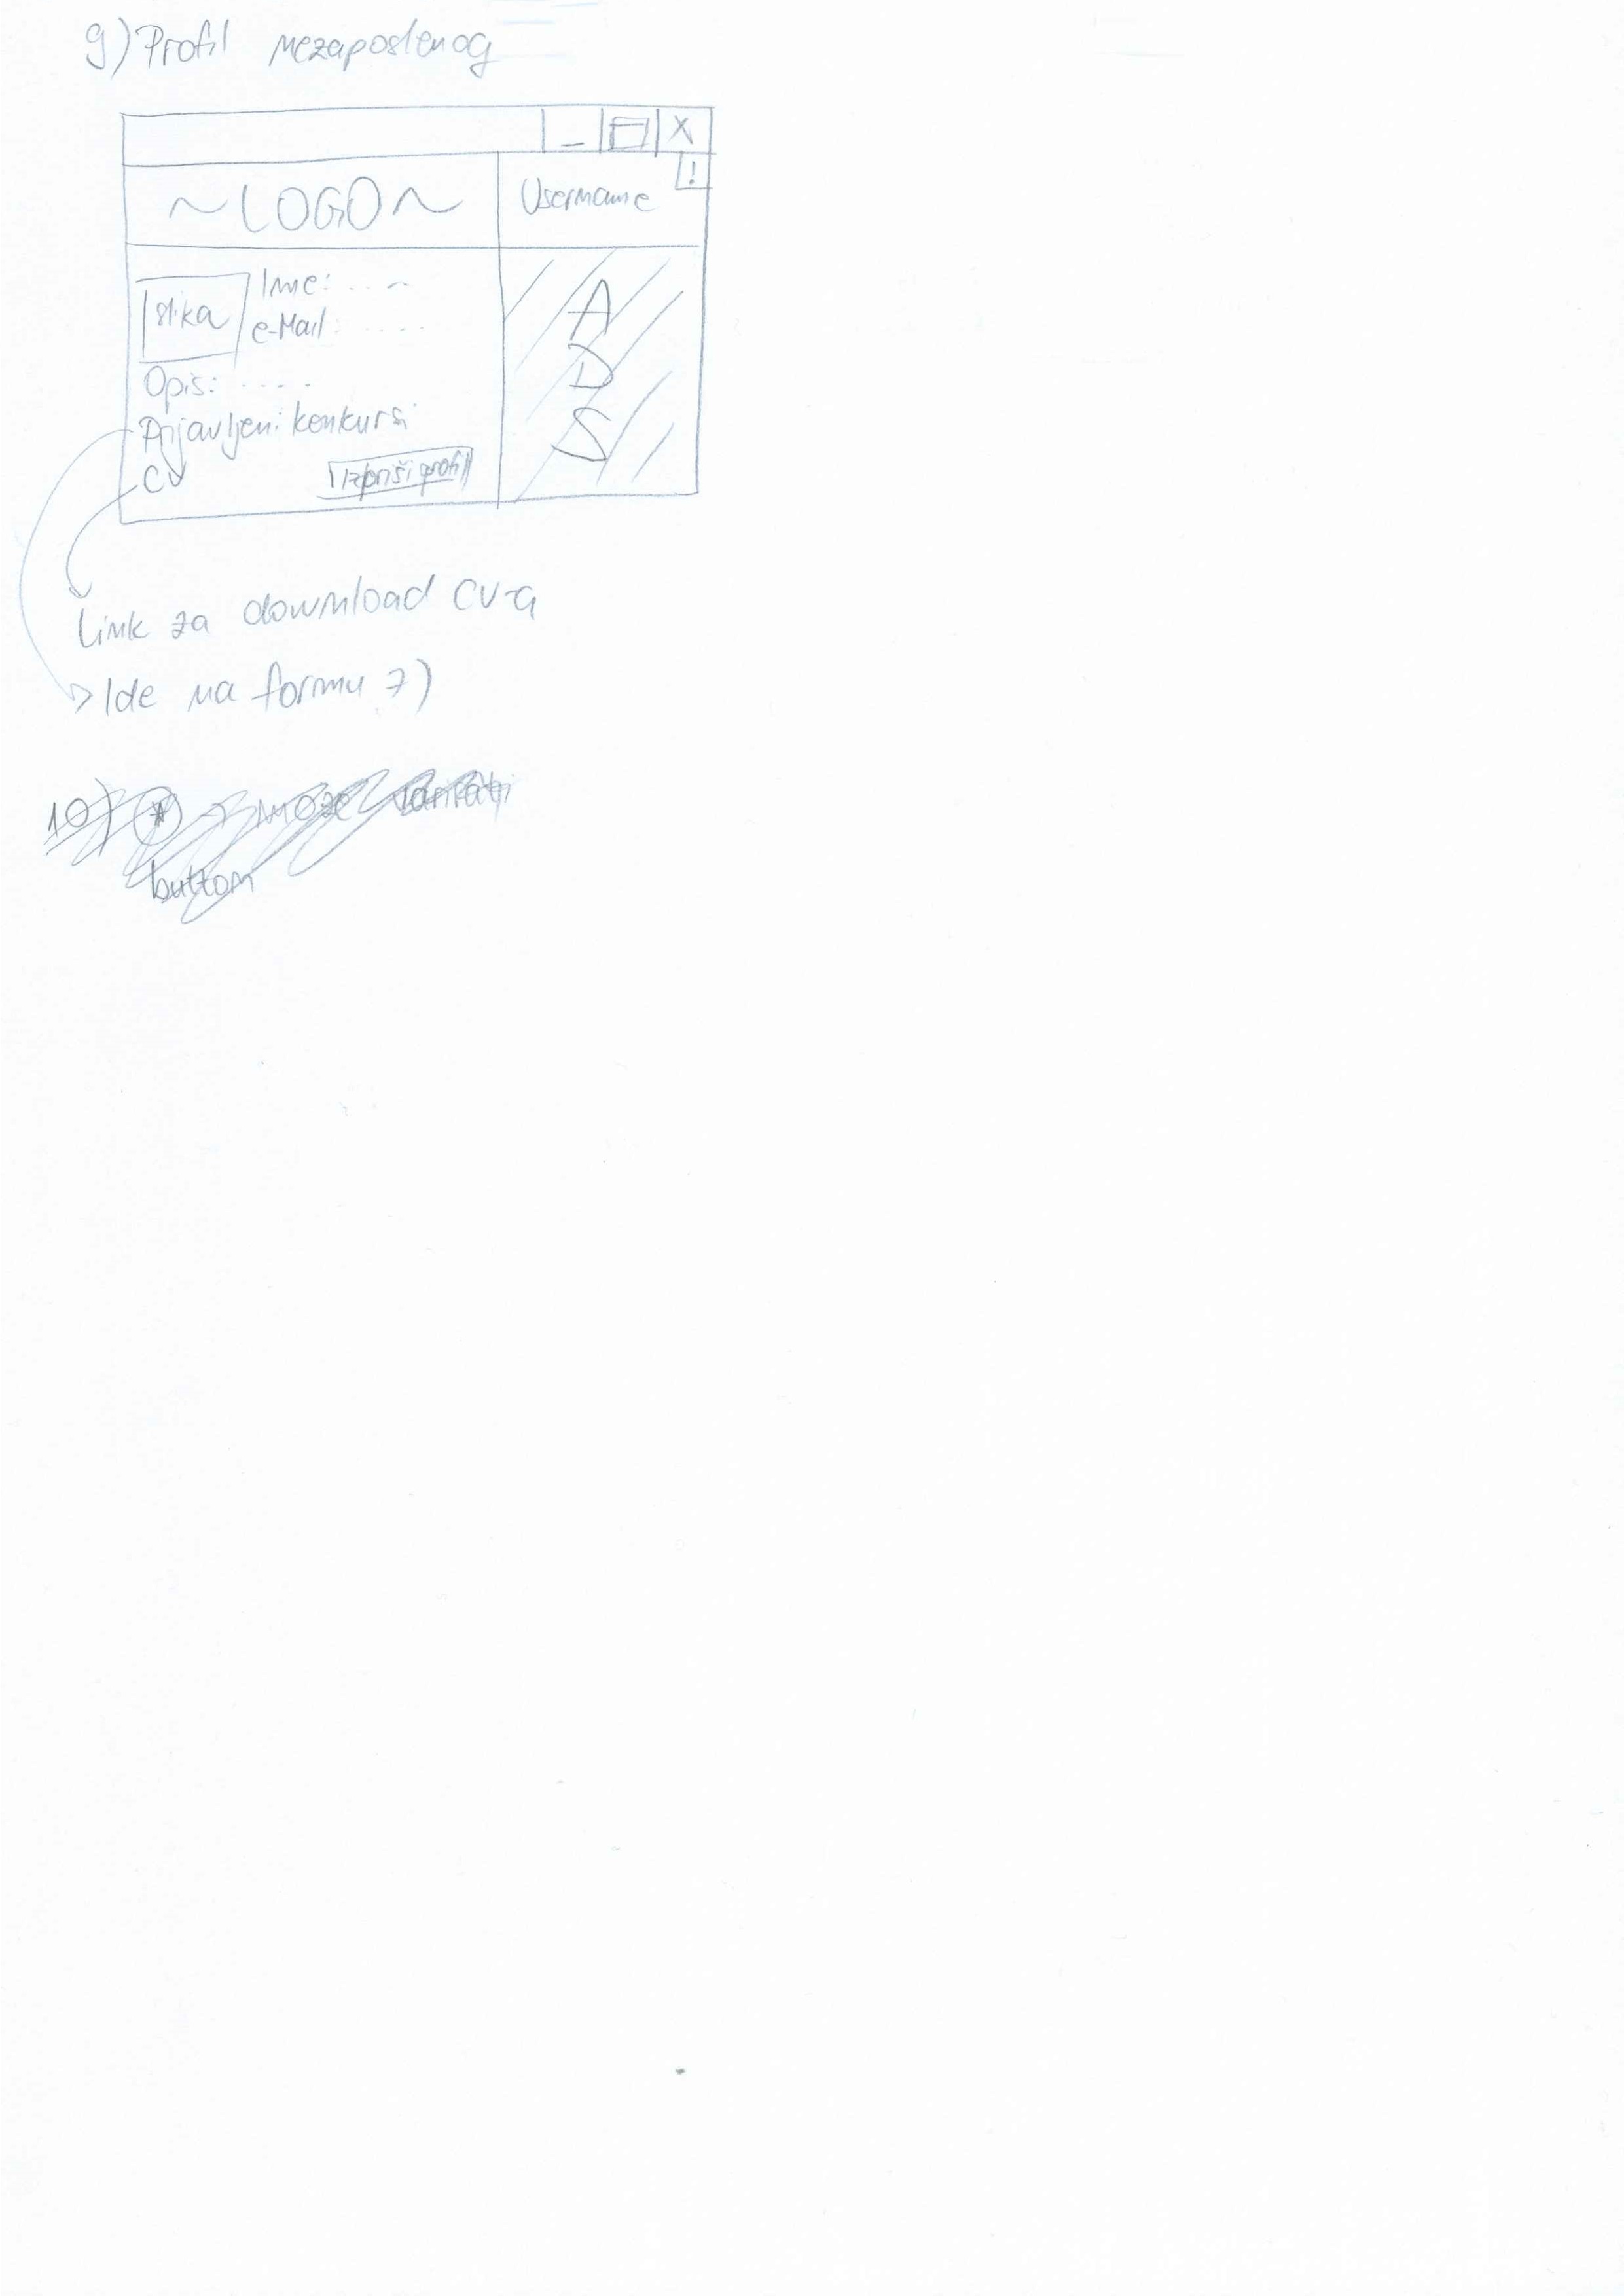 9) Profil nezaposlenog
_ X
!
~LOGO~ Username
slika
Ime: . . .
e-Mail: . . . . .
Opis: . . . .
Prijavljeni konkursi
CV
profil
A
D
S
Link za download CV-a
Ide na formu 7)
10) može
button